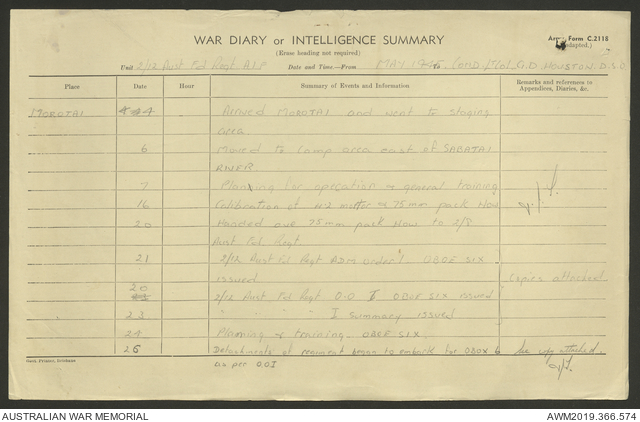 WAR DIARY or INTELLIGENCE SUMMARY
Army Form C.2118
(Erase heading not required)
(adapted.)
Unit 2/12 Aust Fd Regt A.I.F Date and Time—From MAY 1945. Comd. Lt Col. G.D. HOUSTON. D.S.O
Place Date Hour Summary of Events and Information Remarks and references to Appendices, Diaries, &c.
MOROTAI 4 Arrived MOROTAI and went to staging
area
6 Moved to camp area east of SABATAI
RIVER
7 Planning for operation & general training
16 Calibration of 4.2 mortar & 75 mm pack How
20 Handed over 75 mm pack How to 2/8
Aust Fd Regt
21 2/12 Aust Fd Regt Adm Order 1. OBOE SIX
issued Copies attached
20 2/12 Aust Fd Regt O.O I OBOE SIX issued
23 " " " " I summary issued
24 Planning & training. OBOE SIX.
26 Detachments of regiment began to embark for OBOE 6 See attached.
as per OOI
Govt. Printer, Brisbane
AUSTRALIAN WAR MEMORIAL
AWM2019.366.574